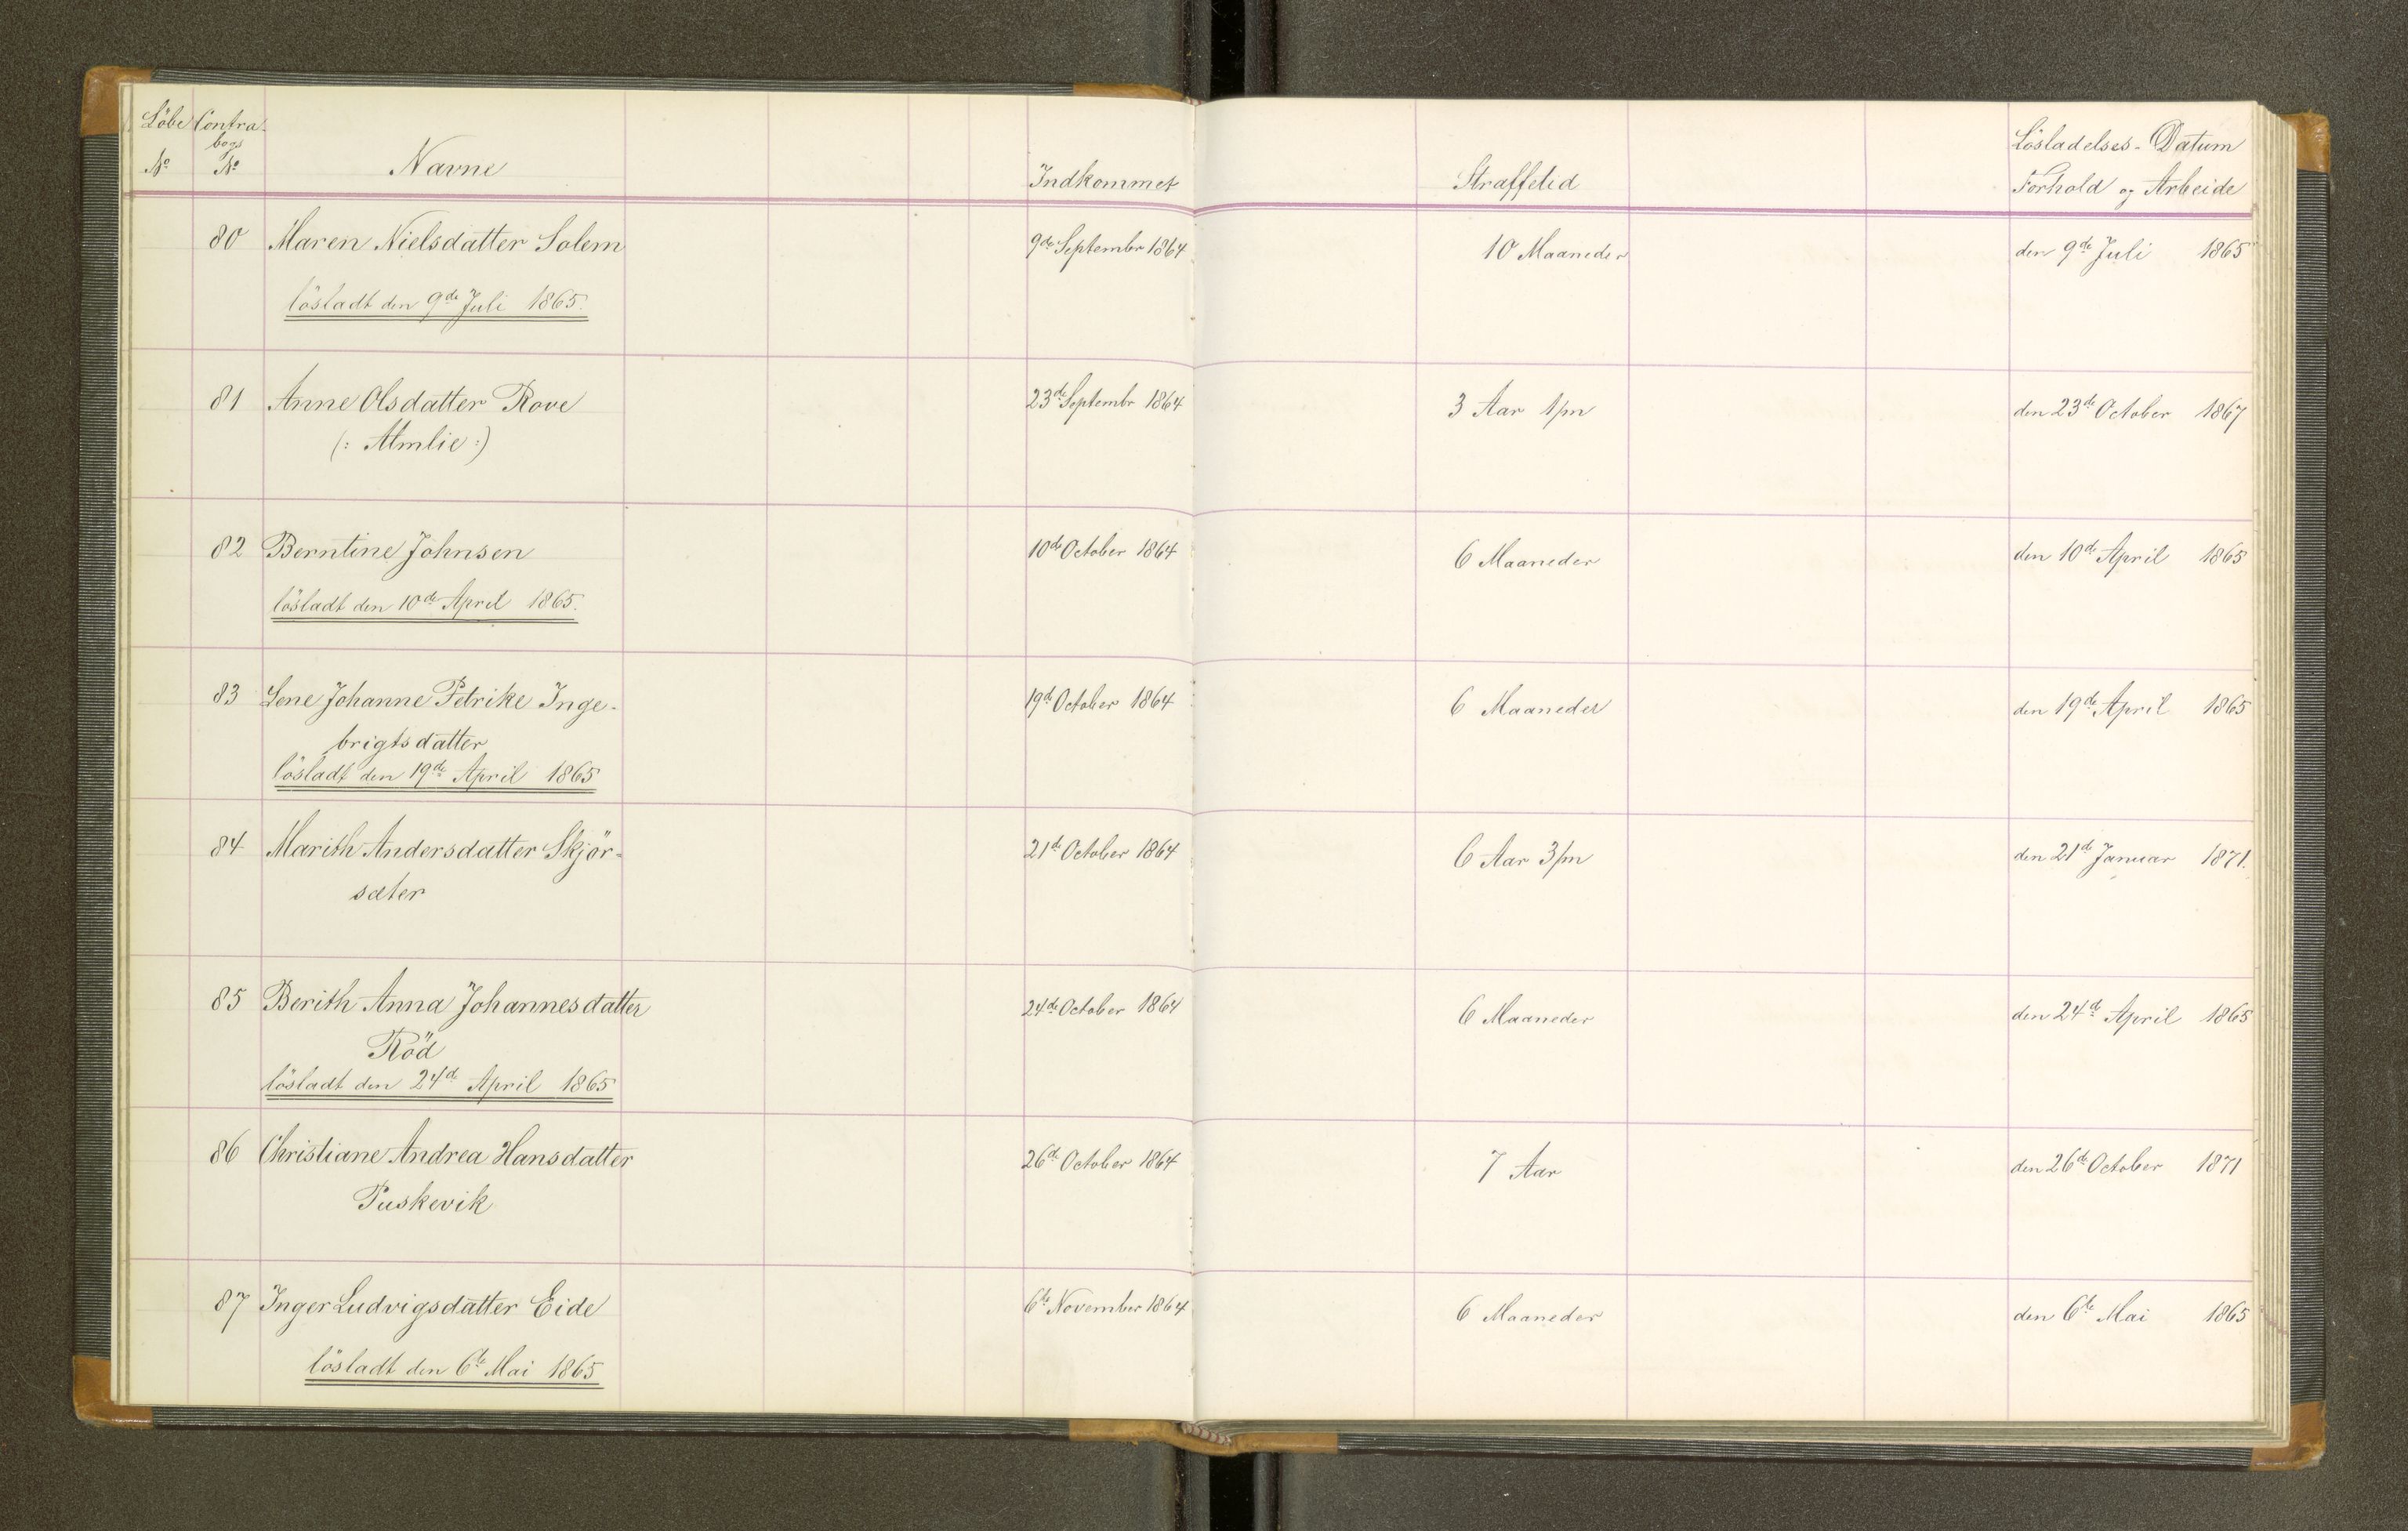 Löbe Contra-
bogs
No No Navne Indkommet Straffetid Lösladelses-Datum
Forhold og Arbeide
80 Maren Nielsdatter Solem 9de Septembr 1864 10 Maaneder den 9de Juli 1865
lösladt den 9de Juli 1865.
81 Anne Olsdatter Rove 23de Septembr 1864 3 Aar 1/m den 23de October 1867
(: Almlie :)
82 Berntine Johnsen 10de October 1864 6 Maaneder den 10de April 1865
lösladt den 10de April 1865.
83 Lene Johanne Petrike Inge- 19de October 1864 6 Maaneder den 19de April 1865
brigtsdatter
lösladt den 19de April 1865
84 Marith Andersdatter Skjör- 21de October 1864 6 Aar 3/m den 21de Januar 1871.
sæter
85 Berith Anna Johannesdatter 24de October 1864 6 Maaneder den 24de April 1865
Röd
lösladt den 24de April 1865
86 Christiane Andrea Hansdatter 26de October 1864 7 Aar den 26de October 1871
Puskevik
87 Inger Ludvigsdatter Eide 6te November 1864 6 Maaneder den 6te Mai 1865
lösladt den 6te Mai 1865